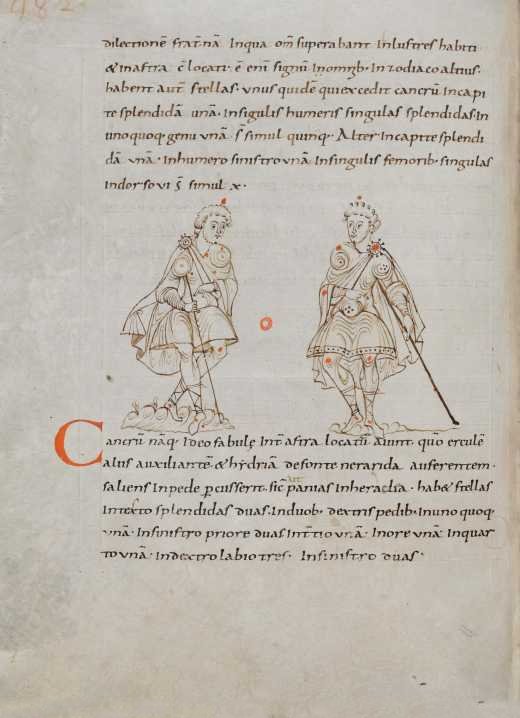 dilectionē frat̄nā Inqua om̄ superabant Inlustres habiti
& inastra c̄ locati. ē enī signū In zodiaco altius.
habent aut̄ stellas. unus quidē qui excedit cancrū Incapi
te splendidā unā. Insigulis humeris singulas splendidas. In
unoquoq. genu unā. s̄ simul quinq. Alter Incapite splendi
dā unā. Inhumero sinistro unā Insingulis femorib. singulas
Indorso vi s̄ simul x.
Cancrū nāq. Ideo fabulę Int̄ astra locatū aiunt. quo erculē
alius auxiliantē & hẏdriā defonte neranda auferentem.
saliens Inpede ꝑcusserit. sic̄ panias Inheraclia. hab& stellas
Intexto splendidas duas. Induob. dextris pedib. Inuno quoq.
unā. Insinistro priore duas Int̄tio unā. Inore unā. Inquar
to unā. Indextro labio tres. Insinistro duas.